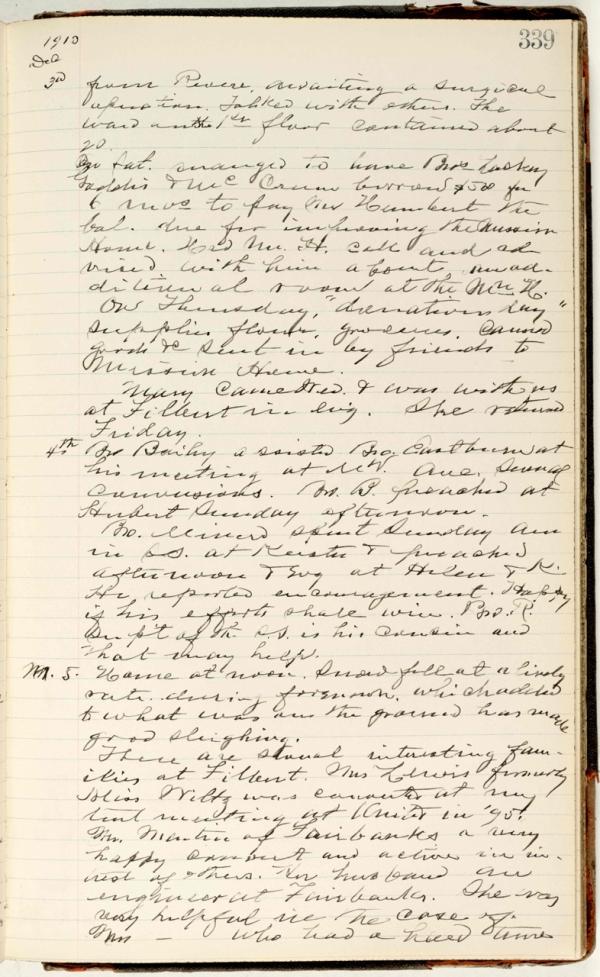 1910
339
Dec
3rd
from Revere, awaiting a surgical
operation. Talked with others. The
ward on the 1st floor contained about
20.
On Sat. arranged to have Bros Laskey
Gaddis & Mc Crum borrow $50 for
6 mos to pay Mr Humbert the
bal. due for improving the Mission
Home. Had Mr. H. call and ad-
vised with him about an ad-
ditional room at the Mn H.
On Thursday, "donations day"
supplies flour, groceries, canned
goods &c sent in by friends to
Mission Home.
Mary came Wed. & was with us
at Filbert in evg. She returned
Friday
4th Bro Baily assisted Bro. Eastburn at
his meeting at Ave. Several
conversions. Bro. B. preached at
Hubert Sunday afternoon.
Bro. Minerd spent Sunday am
in S.S. at Keister & preached
afternoon & Evg at Helen & K.
He reported encouragement. Happy
if his efforts shall win. Bro. R.
Supt of the S.S. is his cousin and
that may help.
Mn. 5. Home at noon. Snow fell at a lively
rate during forenoon, which added
to what was on the ground has made
good sleighing.
There are several interesting fam-
ilies at Filbert. Mrs Lewis formerly
Miss Wiltz was converted at my
tent meeting at in '95.
Mrs. Martin of Fairbanks a very
happy convert and active in in-
rest of others. Her husband an
engineer at Fairbanks. She was
very helpful in the case of
Mrs — who had a hard time